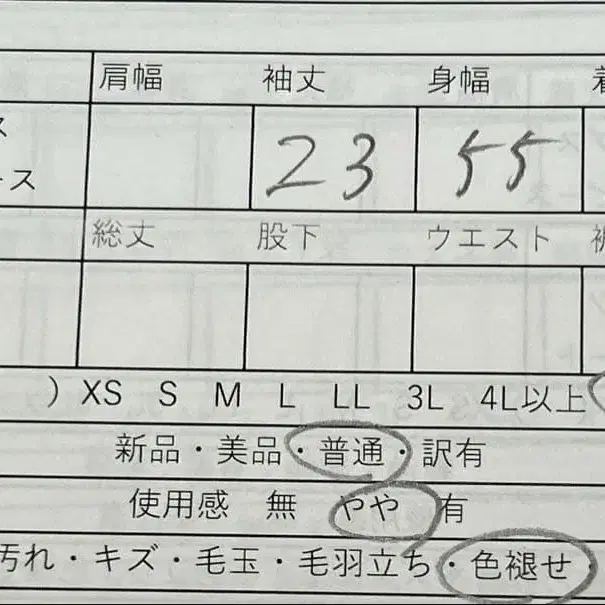 肩幅 袖丈 身幅
ス
ース
23 55
総丈 股下 ウエスト
) XS S M L LL 3L 4L以上
新品・美品・普通・訳有
使用感 無 やや 有
汚れ・キズ・毛玉・毛羽立ち・色褪せ